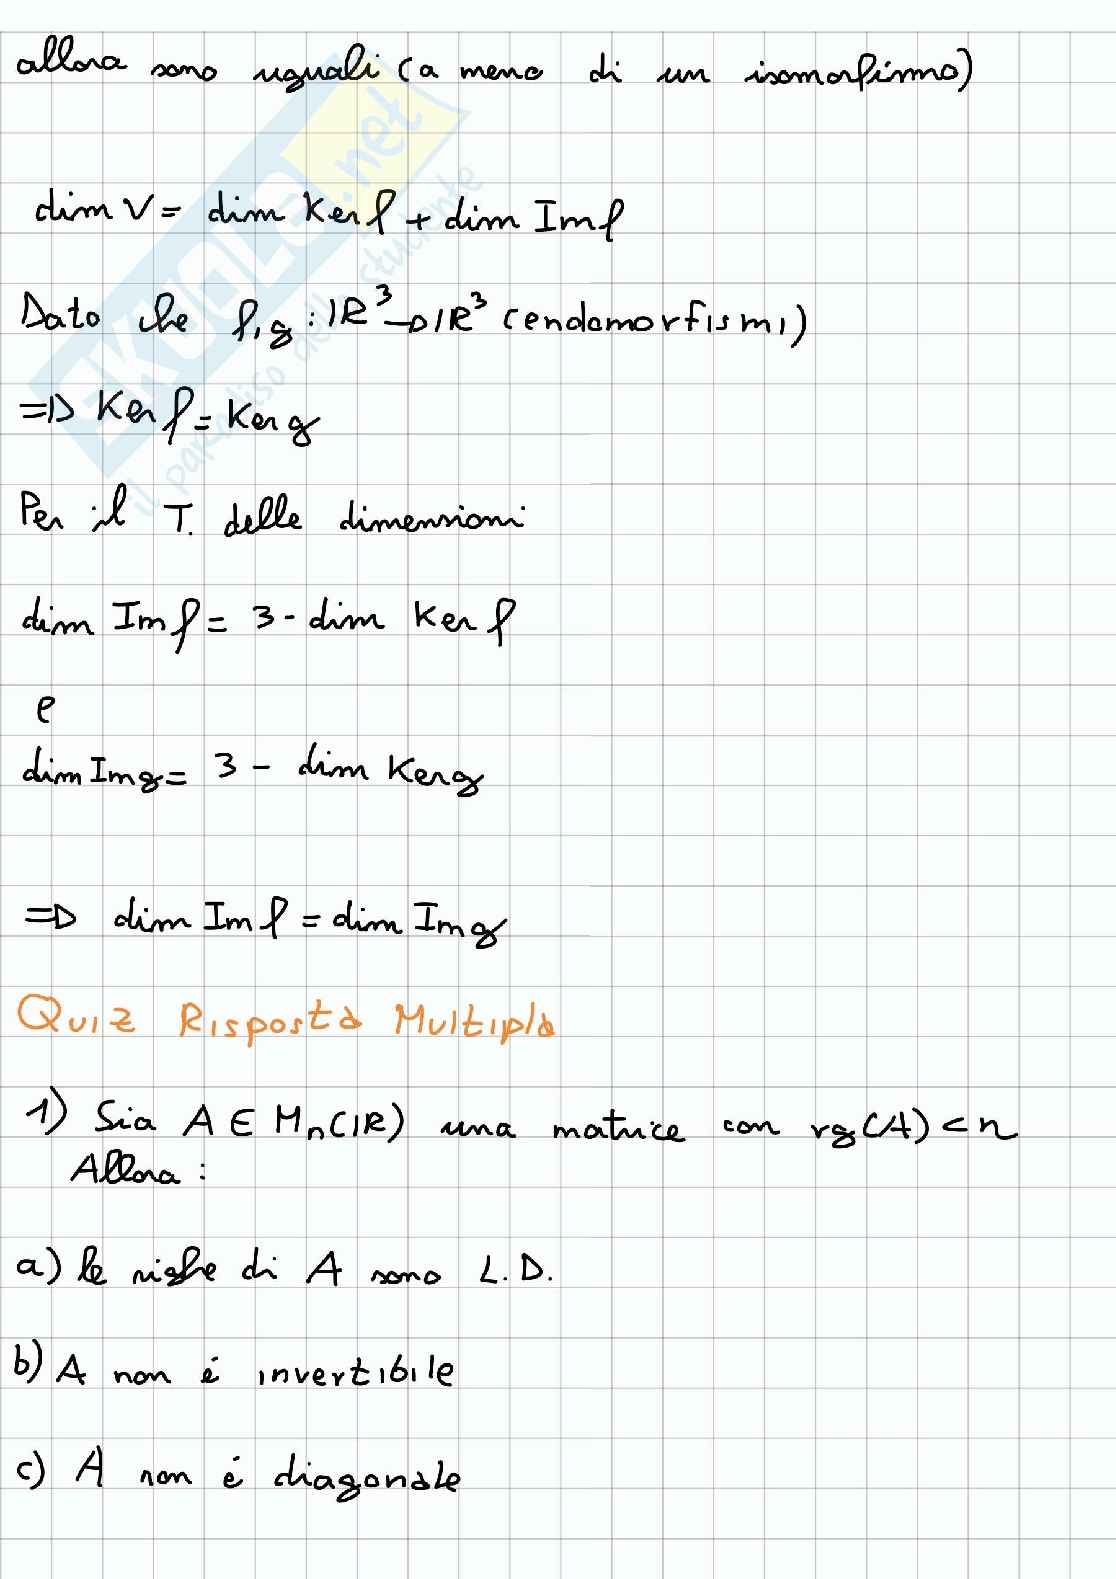 allora sono uguali (a meno di un isomorfismo)
dim V = dim Ker f + dim Im f
Dato che f,g : ℝ³ → ℝ³ (endomorfismi)
=> Ker f = Ker g
Per il T. delle dimensioni
dim Im f = 3 - dim Ker f
e
dim Im g = 3 - dim Ker g
=> dim Im f = dim Im g
Quiz Risposta Multipla
1) Sia A ∈ Mn(ℝ) una matrice con rg(A) < n
Allora :
a) le righe di A sono L.D.
b) A non é invertibile
c) A non é diagonale
SKUOLA.net
il paradiso dello studente